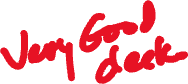 Very Good
deck